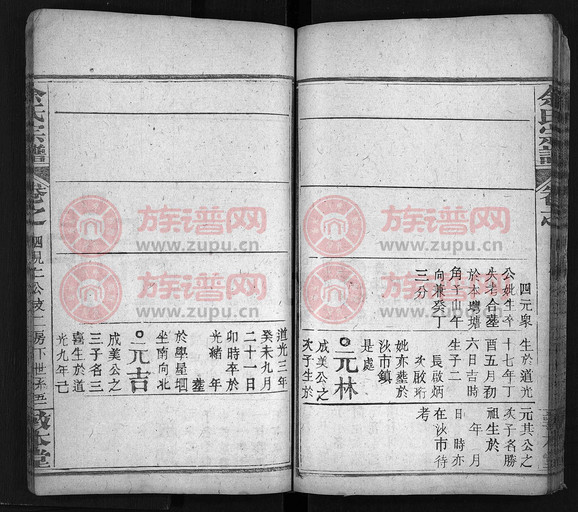 余氏宗譜
卷之
敦本堂
四元泉 生於道光 元其公之
公妣生卒 十七年丁 次子名勝
失考合塟 酉五月初 祖生於
於本灣 六日吉時 年 月
角子山午 生子二 日 時亦
向兼癸丁 長啟炳 在汝市待
三分 次啟珩 考
妣亦塟於
汝市鎮
是處
元林
成美公之
次子生於
道光三年
癸未九月
二十一日
卯時卒於
光緒 年
塟
於學星垇
坐南向北
元吉
成美公之
三子名三
喜生於道
光九年己
余氏宗譜
卷之
公支 二房下世系五
敦本堂
族谱网
www.zupu.cn
族谱网
www.zupu.cn
族谱网
www.zupu.cn
族谱网
www.zupu.cn